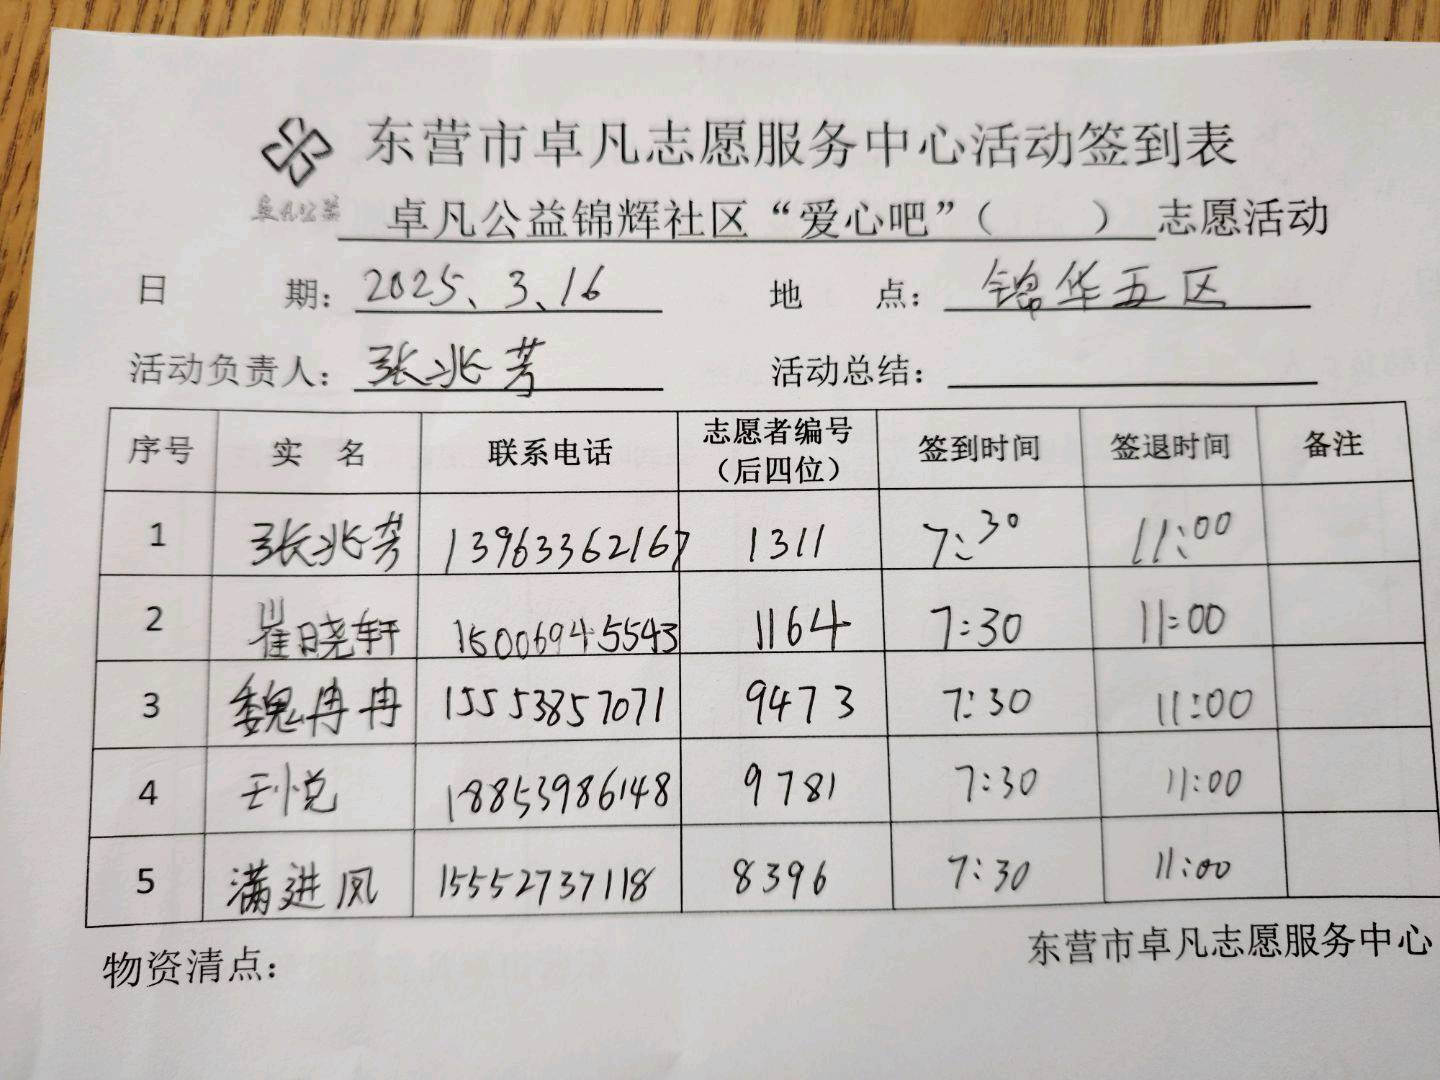 东营市卓凡志愿服务中心活动签到表
卓凡公益
卓凡公益锦辉社区“爱心吧”（ ）志愿活动
日 期：2025、3、16 地 点：锦华五区
活动负责人：张兆芳 活动总结：
序号 实 名 联系电话 志愿者编号（后四位） 签到时间 签退时间 备注
1 张兆芳 13963362167 1311 7:30 11:00
2 崔晓轩 15006945543 1164 7:30 11:00
3 魏冉冉 15553857071 9473 7:30 11:00
4 王小悦 18853986148 9781 7:30 11:00
5 满进凤 15552737118 8396 7:30 11:00
物资清点： 东营市卓凡志愿服务中心